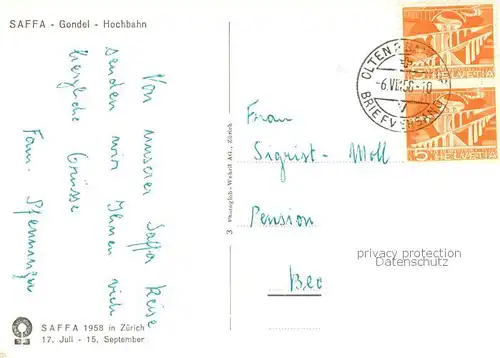 SAFFA - Gondel - Hochbahn
Von unserer Saffa Reise
senden wir Ihnen viele
herzliche Grüsse
Fam.
SAFFA 1958 in Zürich
17. Juli - 15. September
3 Photoglob-Wehrli AG., Zürich
OLTEN
BRIEFVERSAND
5 HELVETIA
5 HELVETIA
Frau
Sigrist - Moll
Pension
privacy protection
Datenschutz